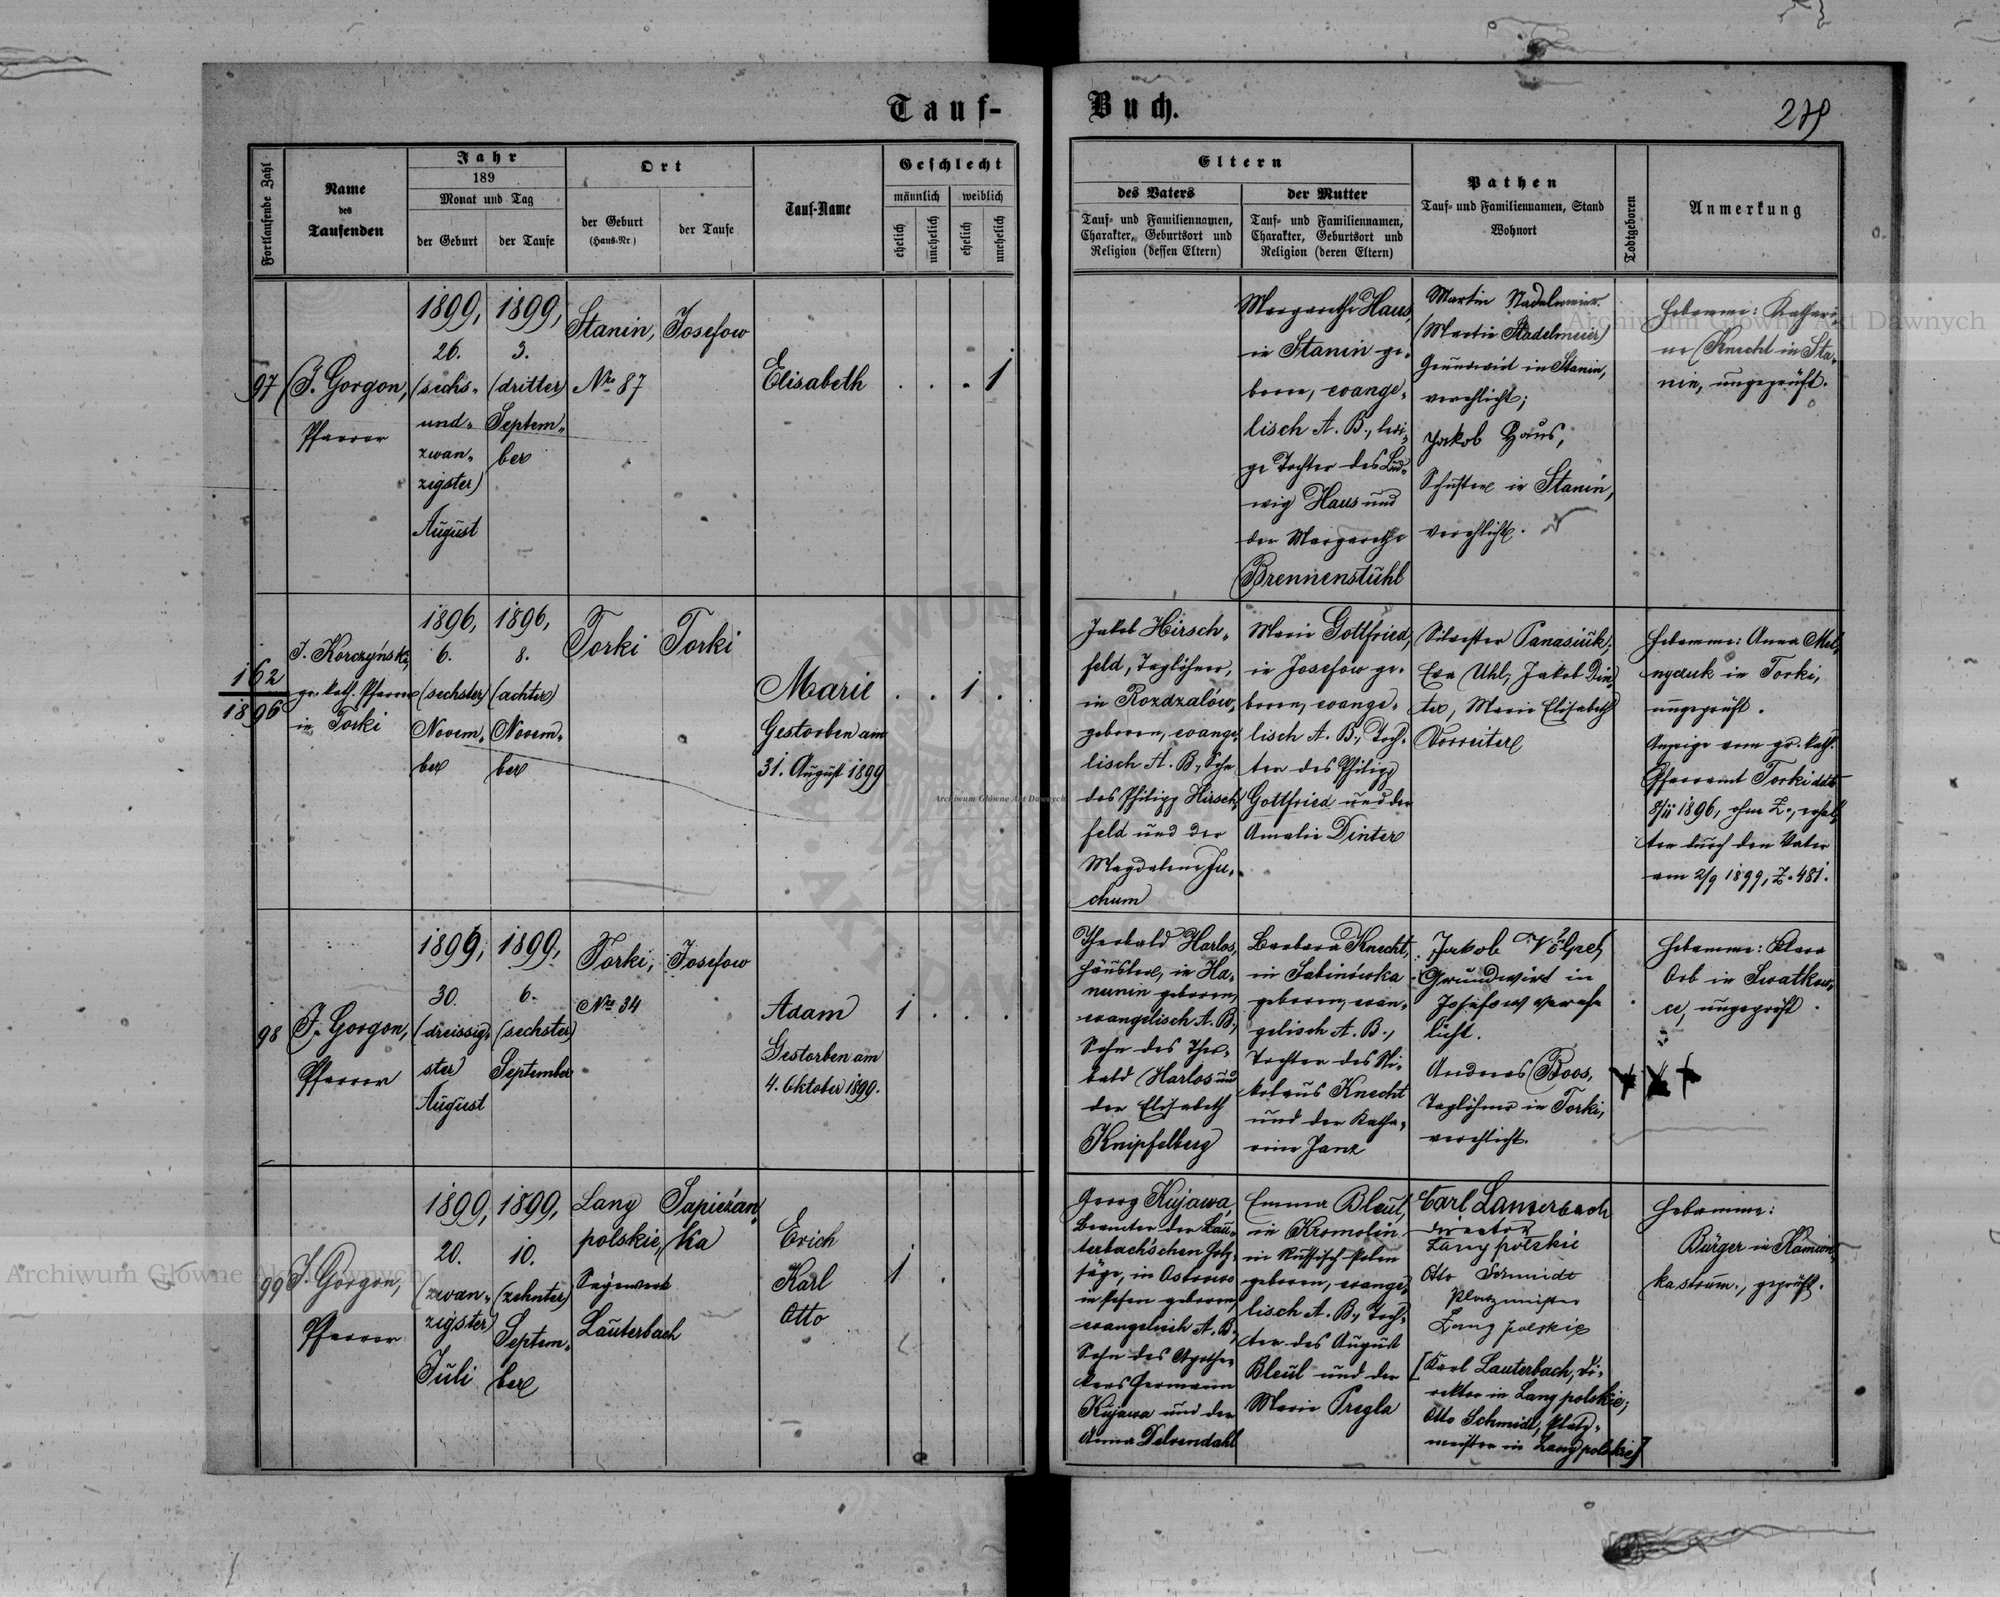 Tauf-
Buch.
279
Fortlaufende Zahl
Name
des
Taufenden
Jahr
189
Monat und Tag
der Geburt
der Taufe
Ort
der Geburt
(Haus-Nr.)
der Taufe
Tauf-Name
Geschlecht
männlich
weiblich
ehelich
unehelich
ehelich
unehelich
Eltern
des Vaters
Tauf- und Familiennamen,
Charakter, Geburtsort und
Religion (dessen Eltern)
der Mutter
Tauf- und Familiennamen,
Charakter, Geburtsort und
Religion (deren Eltern)
Pathen
Tauf- und Familiennamen, Stand
Wohnort
Todtgeboren
Anmerkung
97
J. Gorgon,
Pfarrer
1899,
26.
(sechs-
und-
zwan-
zigster)
August
1899,
3.
(dritter)
Septem-
ber
Stanin,
No 87
Josefow
Elisabeth
. . . 1
Margarethe Haus,
in Stanin ge-
boren, evange-
lisch A. B., ledi-
ge Tochter des Lud-
wig Haus und
der Margarethe
Brennenstuhl
Martin Stadelmeier
(Martin Stadelmeier)
Grundwirt in Stanin,
verehlicht;
Jakob Haus,
Schuster in Stanin,
verehlicht.
Hebamme: Kathari-
na Knecht in Sta-
nin, ungeprüft.
162
1896
J. Korczyński,
gr. kath. Pfarrer
in Torki
1896,
6.
(sechster)
Novem-
ber
1896,
8.
(achter)
Novem-
ber
Torki
Torki
Marie
Gestorben am
31. August 1899
. . 1 .
Jakob Hirsch-
feld, Taglöhner,
in Rozdzalów
geboren, evange-
lisch A. B., Sohn
des Philipp Hirsch-
feld und der
Magdalena Ju-
chum
Marie Gottfried,
in Josefow ge-
boren, evange-
lisch A. B., Toch-
ter des Philipp
Gottfried und der
Amalie Dinter
Silvester Panasiuk,
Eva Uhl, Jakob Din-
ter, Marie Elisabeth
Vorreiter
Hebamme: Anna Mel-
nyczuk in Torki,
ungeprüft.
Anzeige vom gr. kath.
Pfarramt Torki ddto
8/11 1896, ohne Z., erhal-
ten durch den Vater
am 2/9 1899, Z. 481.
98
J. Gorgon,
Pfarrer
1899,
30.
(dreissig-
ster)
August
1899,
6.
(sechster)
September
Torki,
No 34
Josefow
Adam
Gestorben am
4. Oktober 1899.
1 . . .
Theobald Harlos,
Häusler, in Ha-
nunin geboren,
evangelisch A. B.,
Sohn des Theo-
bald Harlos und
der Elisabeth
Knipfelberg
Barbara Knecht,
in Sabinówka
geboren, evan-
gelisch A. B.,
Tochter des Ni-
kolaus Knecht
und der Katha-
rina Janz
Jakob Völpel
Grundwirt in
Josefow verehe
licht.
Andreas Roos,
Taglöhner in Torki,
verehlicht.
Hebamme: Klara
Orb in Swatkow-
ce, ungeprüft.
99
J. Gorgon,
Pfarrer
1899,
20.
(zwan-
zigster)
Juli
1899,
10.
(zehnter)
Septem-
ber
Lany
polskie,
Sägewerk
Lauterbach
Sapiezan-
ka
Erich
Karl
Otto
1 .
Georg Kujawa,
Beamter der Lau-
terbach'schen Holz-
säge, in Ostrowo
in Posen geboren,
evangelisch A. B.,
Sohn des Apothe-
kers Hermann
Kujawa und der
Anna Delvendahl
Emma Bleul,
in Kromolin
in Russisch-Polen
geboren, evange-
lisch A. B., Toch-
ter des August
Bleul und der
Marie Pregla
Carl Lauterbach
Director
Lany polskie
Otto Schmidt
Platzmeister
Lany polskie
[Karl Lauterbach, Di-
rektor in Lany polskie;
Otto Schmidt, Platz-
meister in Lany polskie]
Hebamme:
Bürger in Kamion-
ka strum., geprüft.
Archiwum Główne Akt Dawnych
Archiwum Główne Akt Dawnych
Archiwum Główne Akt Dawnych